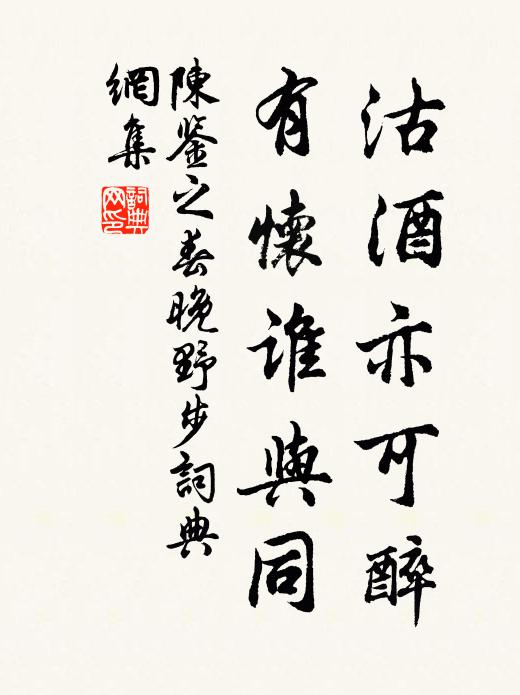 沽酒亦可醉
有懷誰與同
陳鑒之春晚野步詞典
網集
詞典
网印